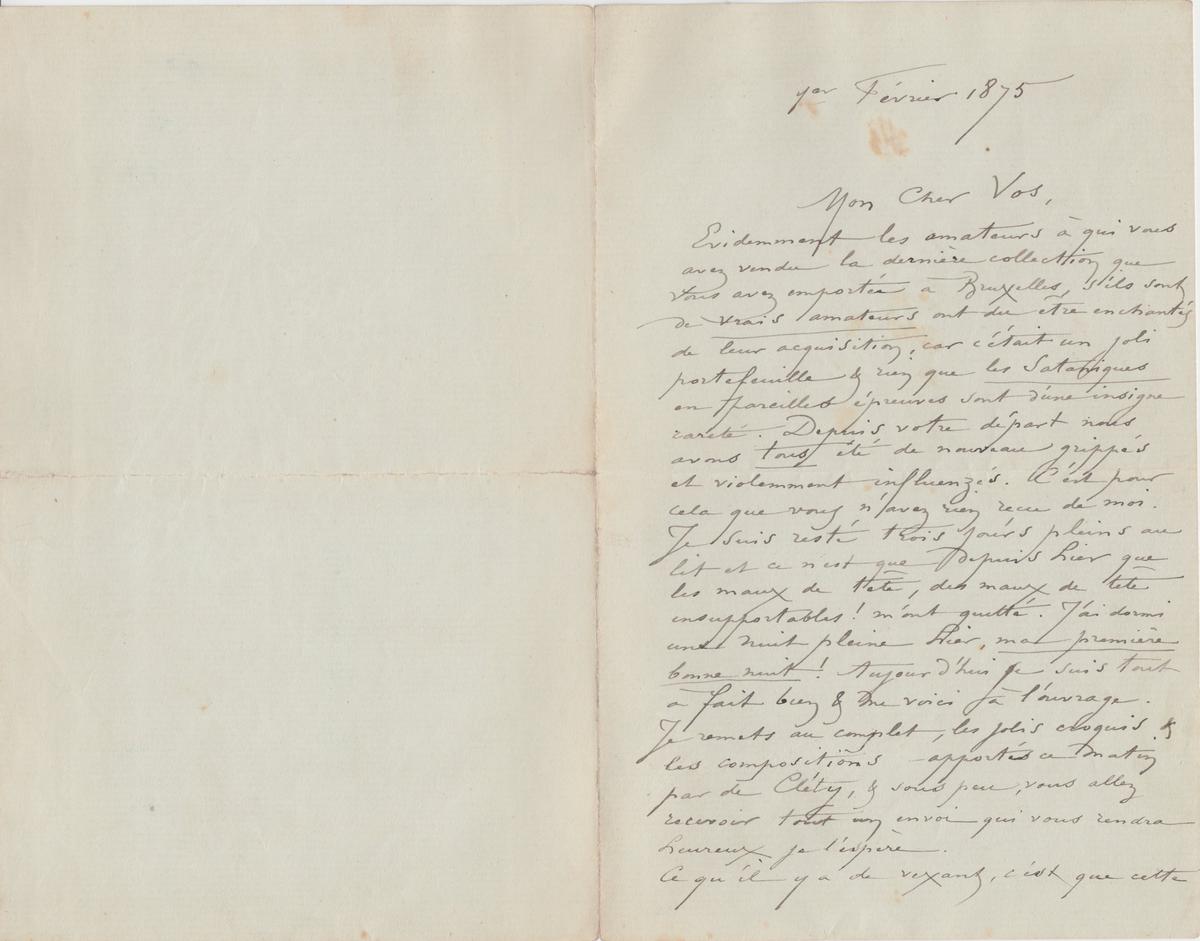 1er Février 1875
Mon Cher Vos,
Evidemment les amateurs à qui vous
avez vendu la dernière collection que
vous avez emportée à Bruxelles, s'ils sont
de vrais amateurs ont du être enchantés
de leur acquisition, car c'était un joli
portefeuille & rien que les Sataniques
en pareilles épreuves sont d'une insigne
rareté. Depuis votre départ nous
avons tous été de nouveau grippés
et violemment influenzés. C'est pour
cela que vous n'avez rien recu de moi.
Je suis resté trois jours pleins au
lit et ce n'est que depuis hier que
les maux de tête, des maux de tête
insupportables ! m'ont quitté. J'ai dormi
une nuit pleine hier, ma première
bonne nuit ! Aujourd'hui je suis tout
à fait bien & me voici à l'ouvrage.
Je remets au complet, les jolis croquis &
les compositions apportés ce matin
par de Cléty, & sous peu, vous allez
recevoir tout un envoi qui vous rendra
heureux je l'espère.
Ce qu'il y a de vexant, c'est que cette